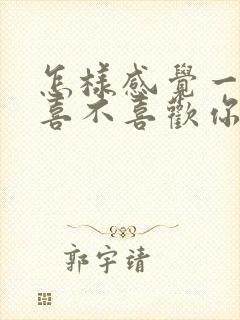 怎樣感覺一
喜不喜歡你
郭宇靖